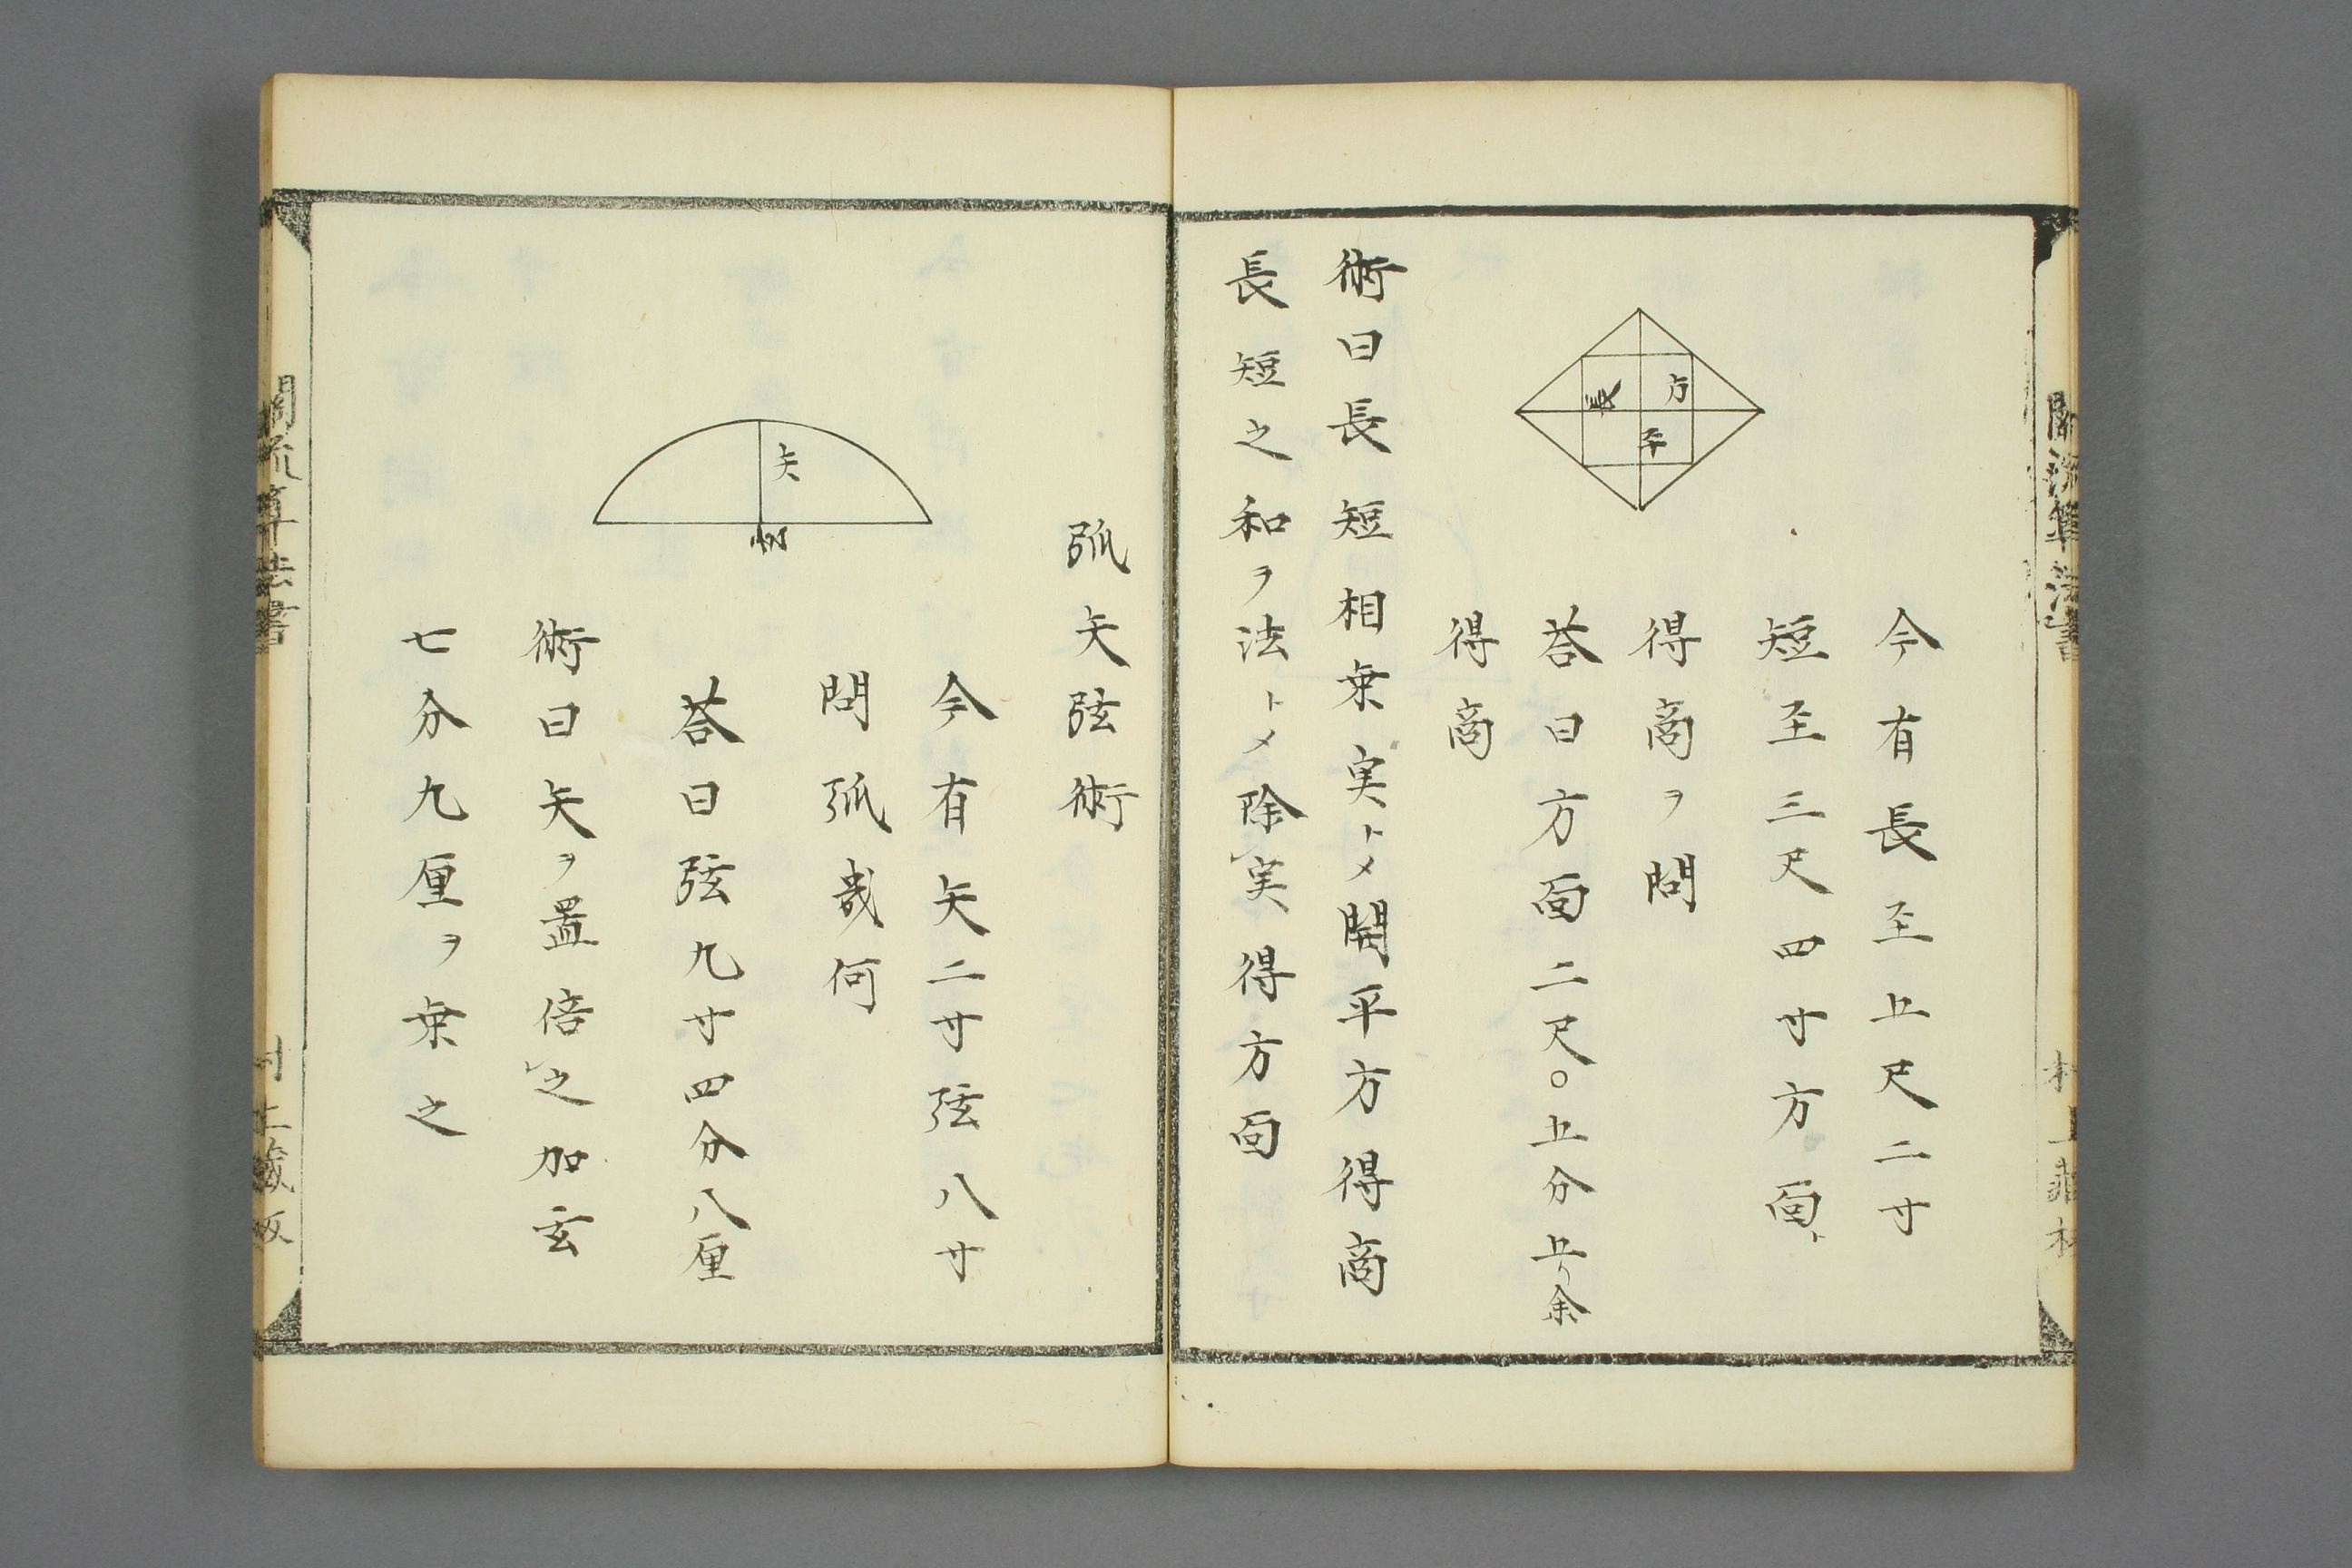 関流算法書
方
長
平
今有長至五尺二寸
短至三尺四寸方面ト
得商ヲ問
荅曰方面二尺〇五分五リ余
得商
術曰長短相乗実トメ開平方得商
長短之和ヲ法トメ除レ実得方面
弧矢弦術
矢
弦
今有矢二寸弦八寸
問弧幾何
荅曰弦九寸四分八厘
術曰矢ヲ置倍レ之加玄
七分九厘ヲ乗之
関流算法書
村上蔵板